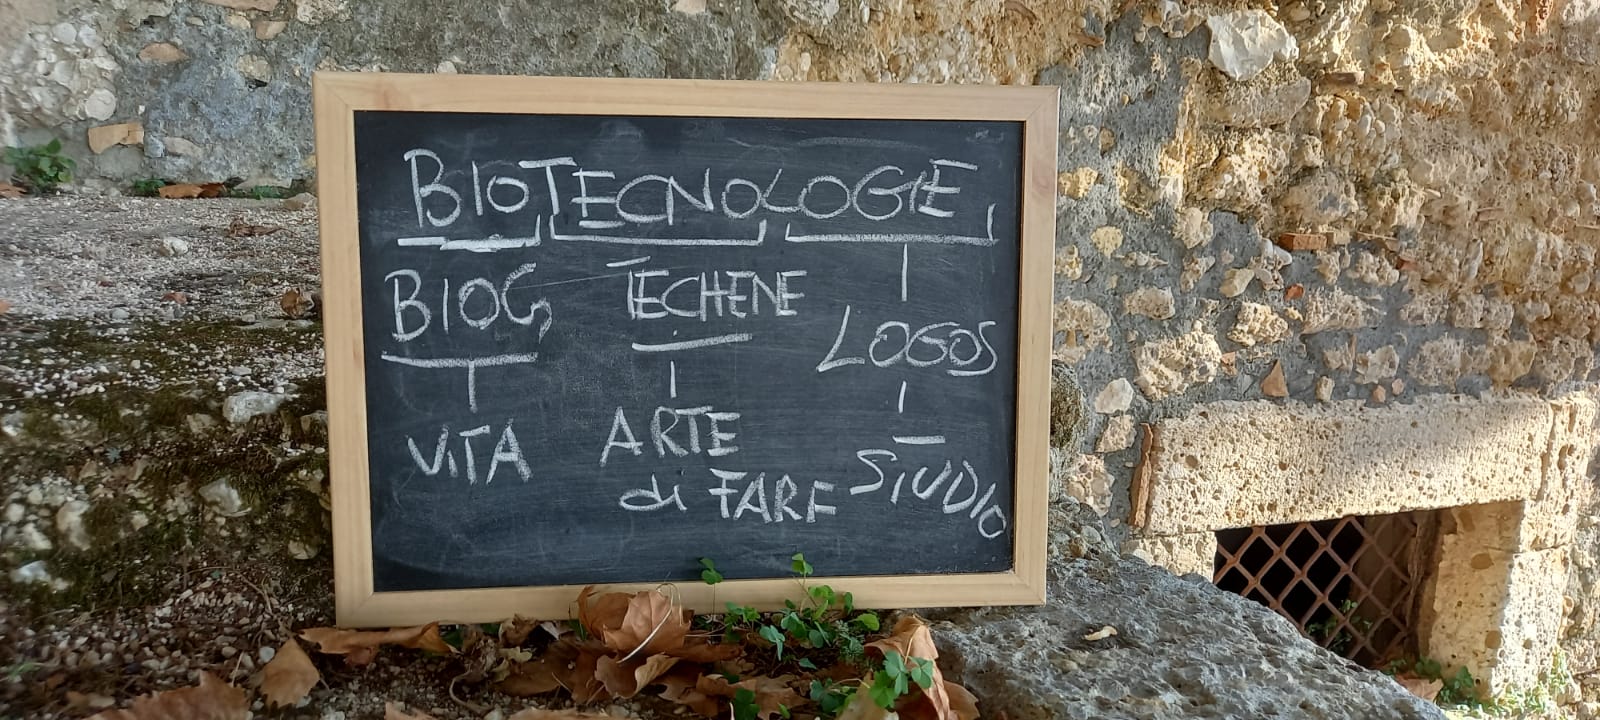 BIOTECNOLOGIE
BIOS TECHENE
LOGOS
VITA ARTE STUDIO
di FARE